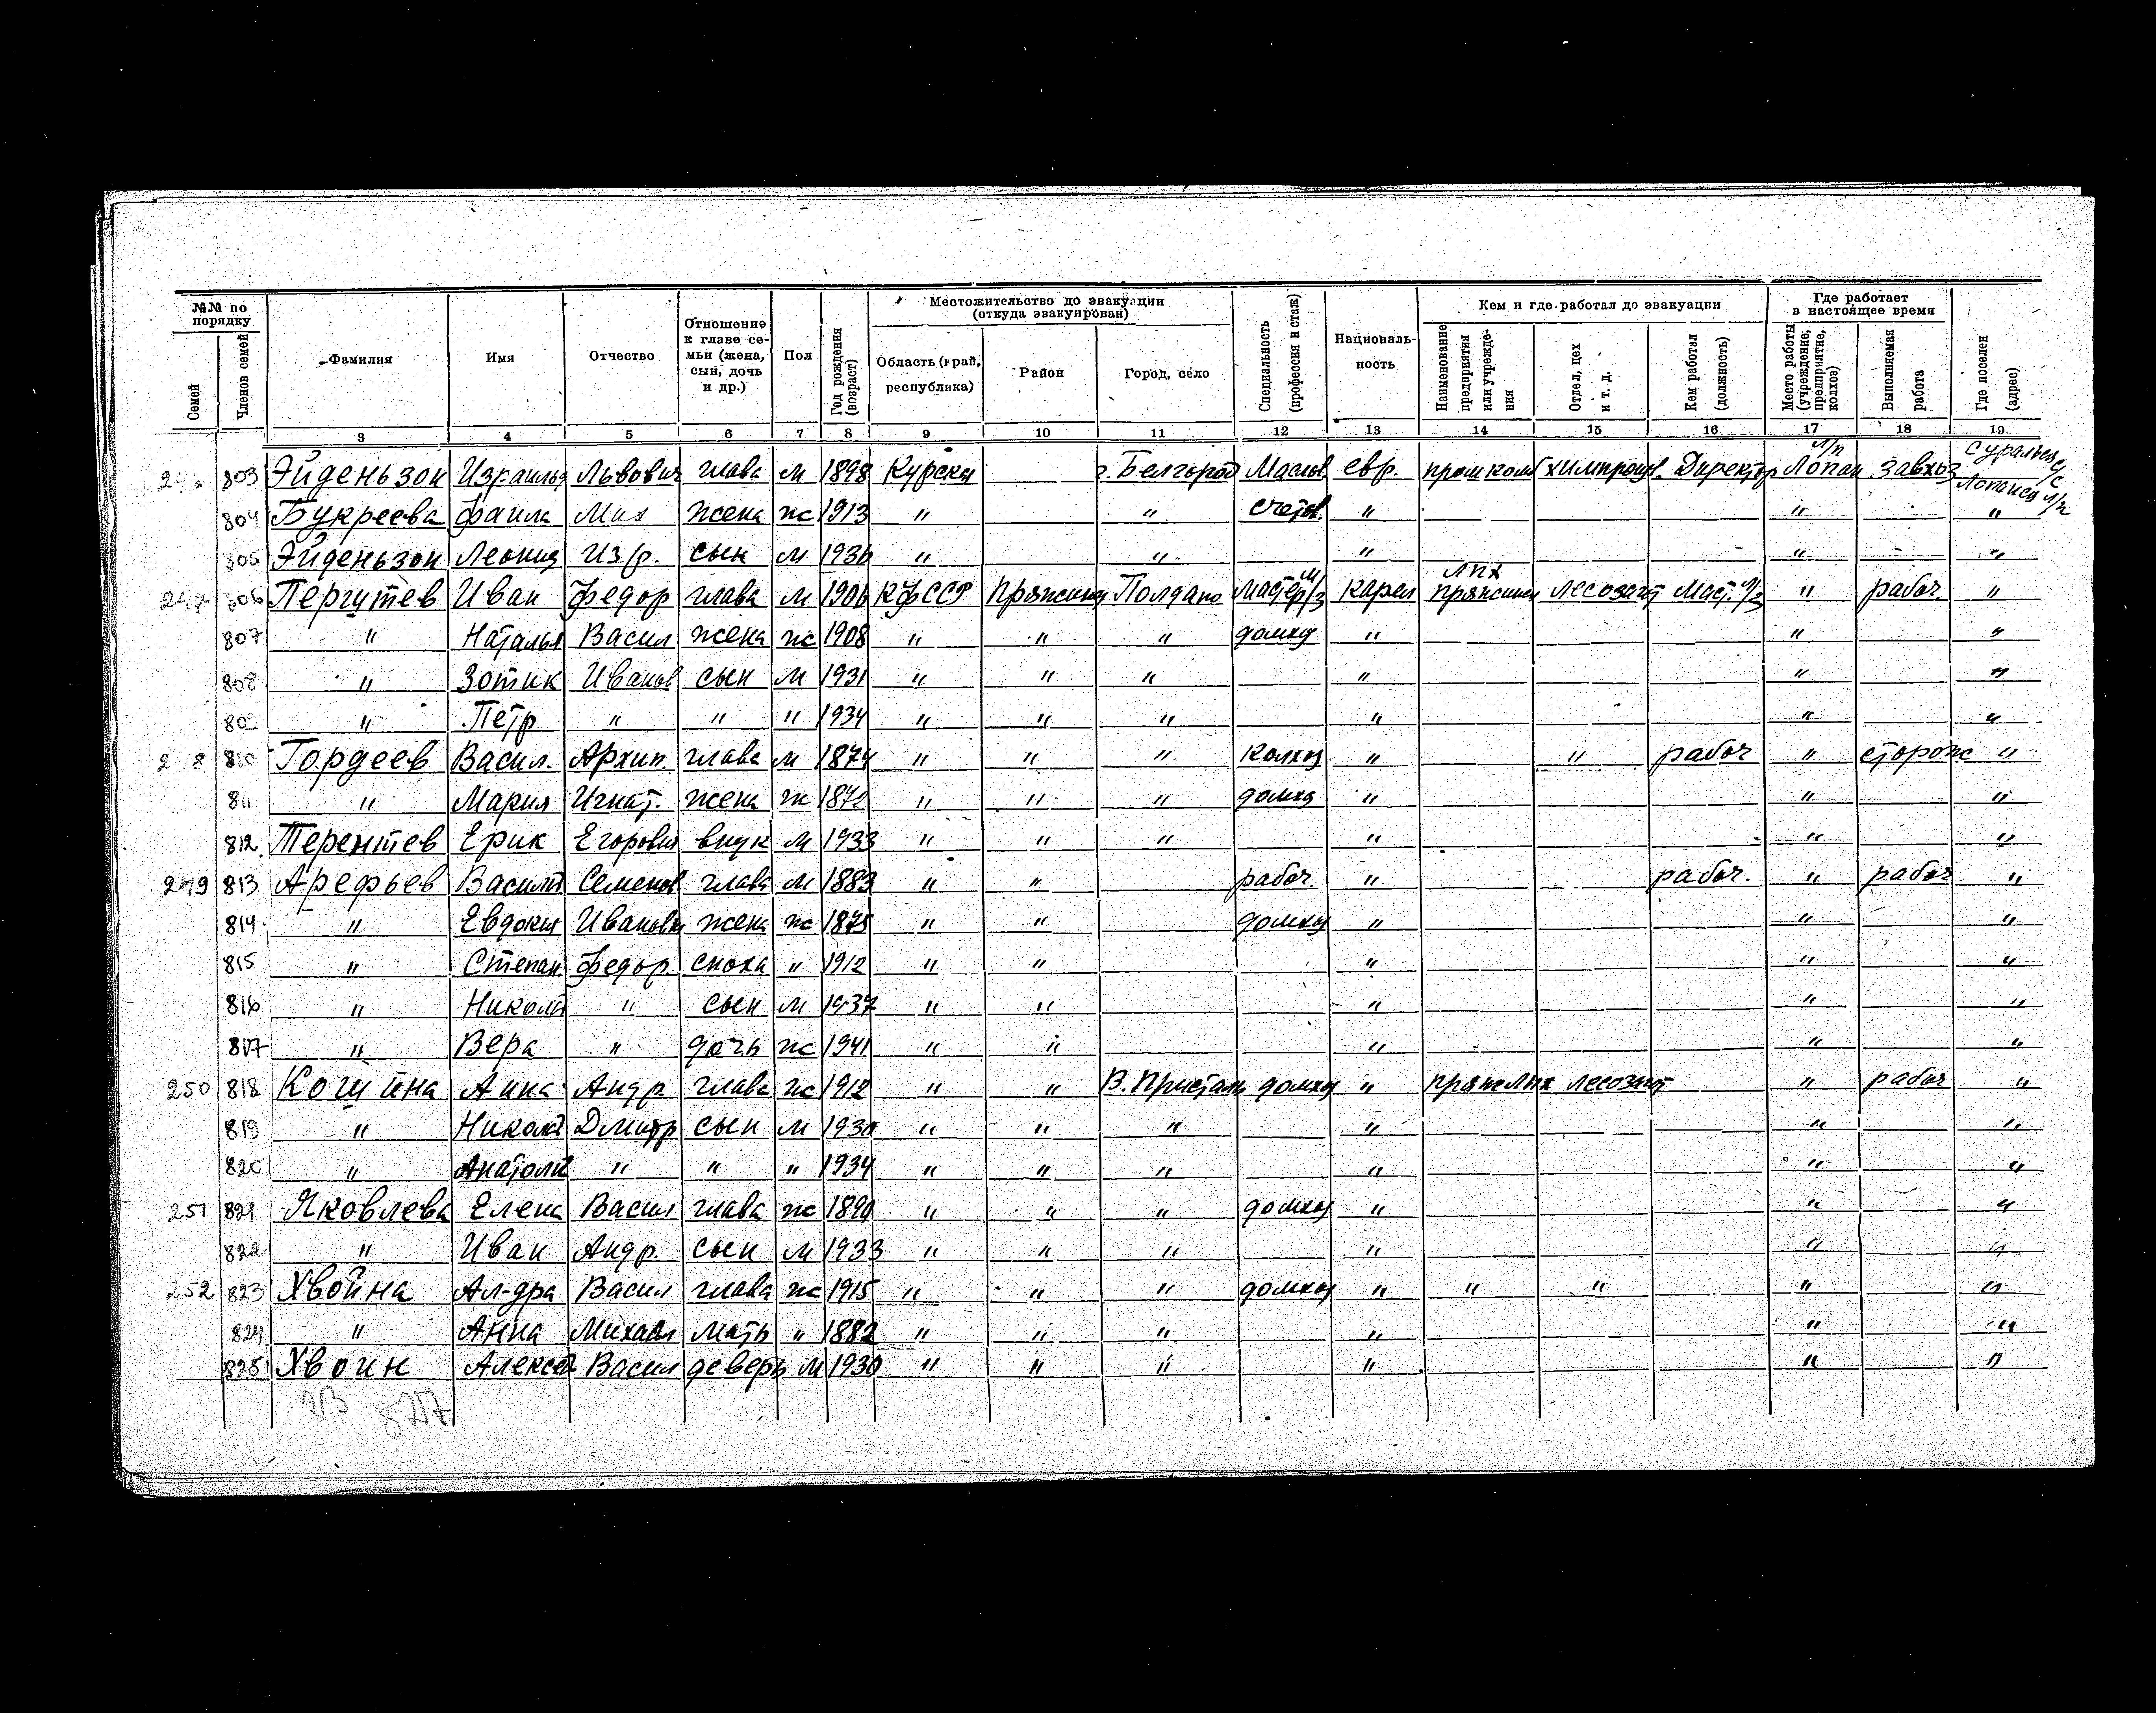 №№ по порядку
Семей
Членов семей
Фамилия
Имя
Отчество
Отношение к главе семьи (жена, сын, дочь и др.)
Пол
Год рождения (возраст)
Местожительство до эвакуации (откуда эвакуирован)
Область (край, республика)
Район
Город, село
Специальность (профессия и стаж)
Националь-ность
Кем и где работал до эвакуации
Наименование предприятия или учрежде-ния
Отдел, цех и т. д.
Кем работал (должность)
Где работает в настоящее время
Место работы (учреждение, предприятие, колхоз)
Выполняемая работа
Где поселен (адрес)
3 4 5 6 7 8 9 10 11 12 13 14 15 16 17 18 19
803 Эйденьзон Израиль Львович глава м 1898 Курская г. Белгород Маслов. евр. промкомб химпроизв. Директор л/п Лопан завхоз
804 Букреева Фаила Мих жена ж 1913 " " счетов. " " "
805 Эйденьзон Леонид Изр. сын м 1936 " " " " "
247 806 Пергутев Иван Федор глава м 1906 КФССР Пряжинск Мастер л/з Карел Пряжинск ЛПХ лесозагот Маст. л/з " рабоч. "
807 " Наталья Васил жена ж 1908 " " " домхоз " " "
808 " Зотик Иванов сын м 1931 " " " " " "
809 " Петр " " " 1934 " " " " " "
248 810 Гордеев Васил. Архип. глава м 1874 " " " Колхоз " " рабоч " сторож "
811 " Мария Игнат. жена ж 1872 " " " домхо " " "
812 Терентев Ерик Егорович внук м 1933 " " " " " "
249 813 Арефьев Василий Семенов глава м 1883 " " рабоч " рабоч. " рабоч "
814 " Евдокия Ивановна жена ж 1875 " " домхоз " " "
815 " Степан. Федор сноха " 1912 " " " " "
816 " Николай " сын м 1937 " " " " "
817 " Вера " дочь ж 1941 " " " " "
250 818 Кощина Анна Андр. глава ж 1912 " " В. Пристань домхоз " пряжлпх лесозагот " рабоч "
819 " Николай Дмитр сын м 1930 " " " " " "
820 " Анатолий " " " 1934 " " " " " "
251 821 Яковлева Елена Васил глава ж 1890 " " " домхоз " " "
822 " Иван Андр. сын м 1933 " " " " " "
252 823 Хвойна Ал-дра Васил глава ж 1915 " " " домхоз " " " " "
824 " Анна Михаил мать " 1882 " " " " " "
825 Хвоин Алексей Васил деверь м 1930 " " " " " "